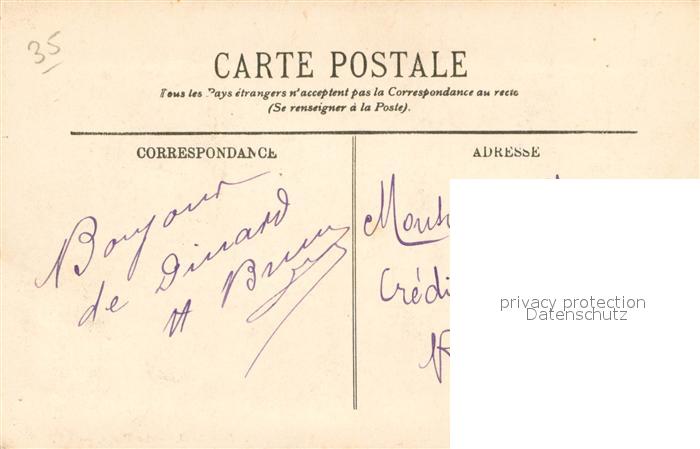 35
CARTE POSTALE
Tous les Pays étrangers n'acceptent pas la Correspondance au recto
(Se renseigner à la Poste).
CORRESPONDANCE
ADRESSE
Bonjour
de Dinard
Crédi
privacy protection
Datenschutz